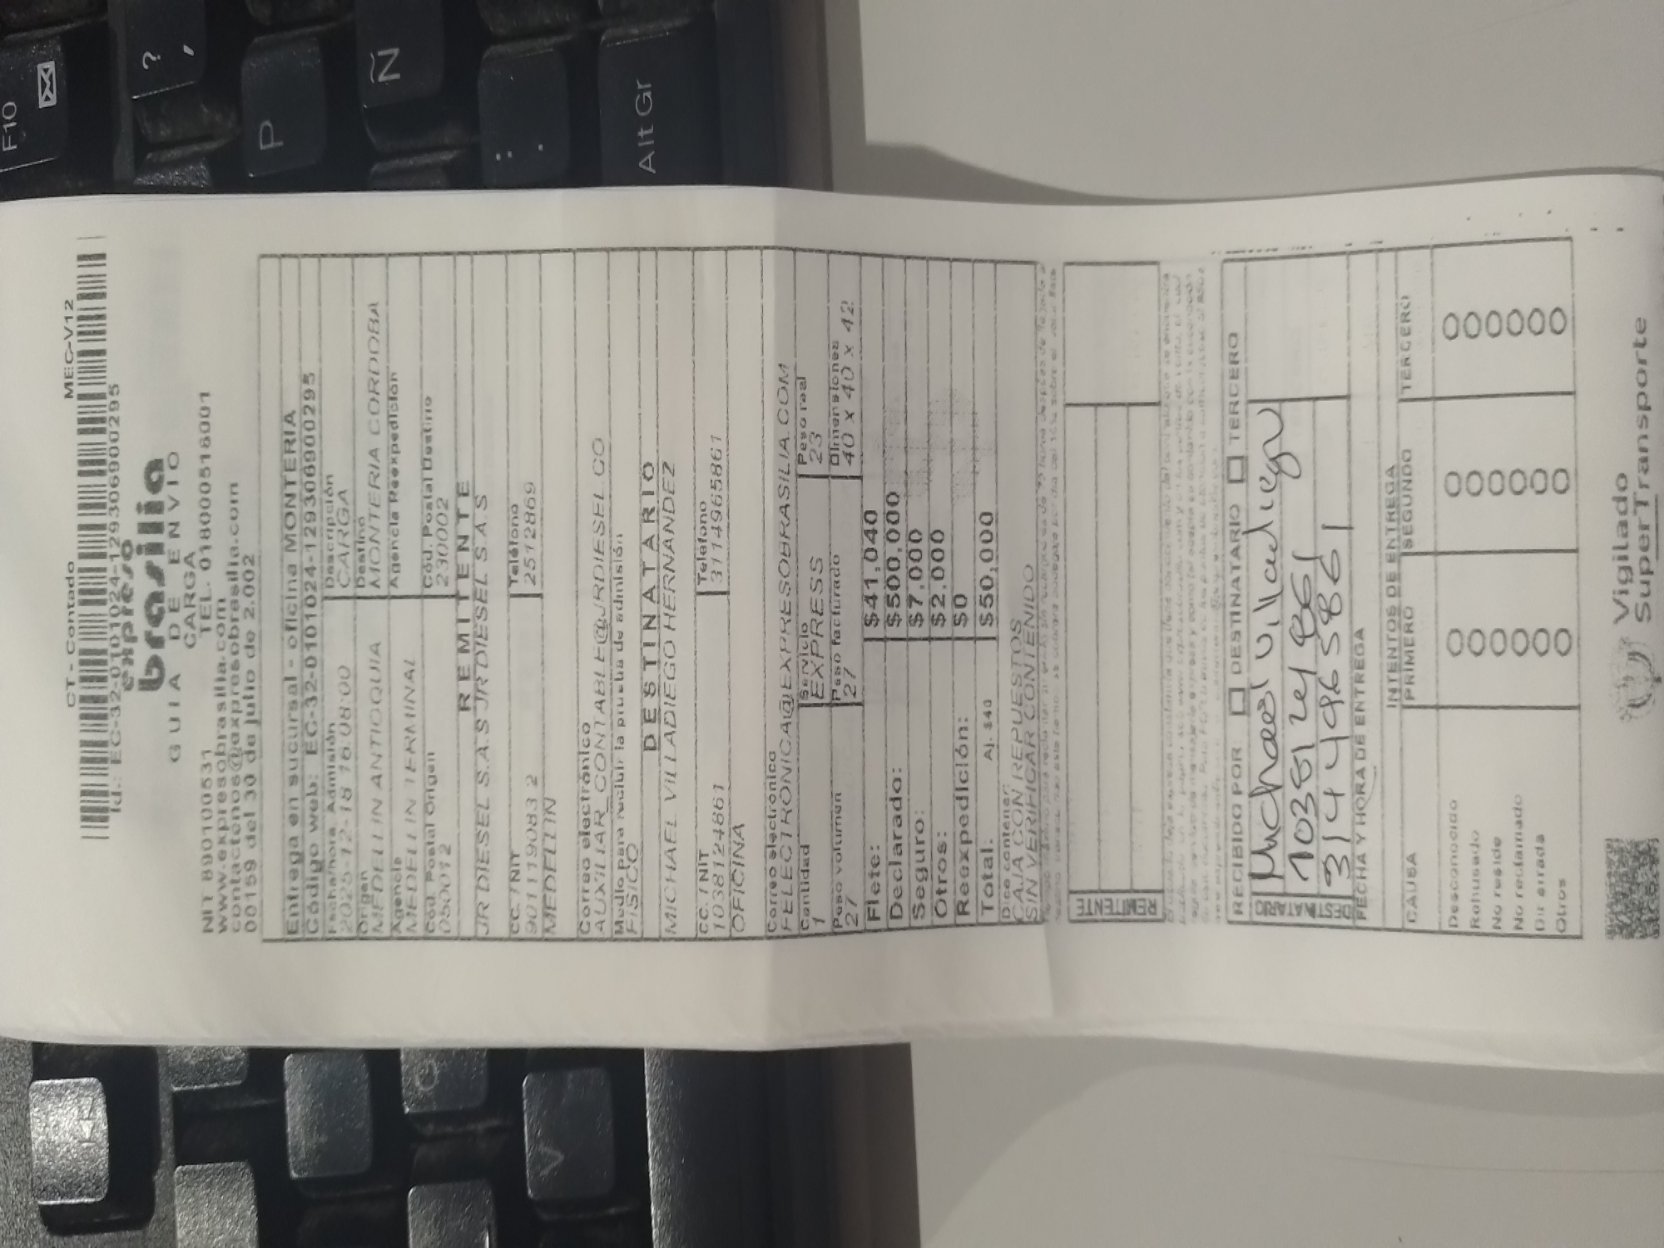 CT - Contado MEC-V12
Id.: EC-32-0101024-1293069000295
expreso
brasilia
GUIA DE ENVIO
CARGA
NIT 890100531 TEL. 018000516001
www.expresobrasilia.com
contactenos@expresobrasilia.com
00159 del 30 de julio de 2.002
Entrega en sucursal - oficina MONTERIA
Código web: EC-32-0101024-1293069000295
Fecha/hora Admisión Descripción
2025-12-18 16:08:00 CARGA
Origen Destino
MEDELLIN ANTIOQUIA MONTERIA CORDOBA
Agencia Agencia Reexpedición
MEDELLIN TERMINAL
Cód. Postal Origen Cód. Postal Destino
050012 230002
REMITENTE
JR DIESEL S.A.S JR DIESEL S.A.S
CC. / NIT Teléfono
901119083 2 2512869
MEDELLIN
Correo electrónico
AUXILIAR_CONTABLE@JRDIESEL.CO
Medio para recibir la prueba de admisión
FISICO
DESTINATARIO
MICHAEL VILLADIEGO HERNANDEZ
CC. / NIT Teléfono
1038124861 3114965861
OFICINA
Correo electrónico
FELECTRONICA@EXPRESOBRASILIA.COM
Cantidad Servicio Peso real
1 EXPRESS 23
Peso volumen Peso facturado Dimensiones
27 27 40 x 40 x 42
Flete: $41,040
Declarado: $500,000
Seguro: $7,000
Otros: $2,000
Reexpedición: $0
Total: Aj. $40 $50,000
Dice contener:
CAJA CON REPUESTOS
SIN VERIFICAR CONTENIDO
REMITENTE
RECIBIDO POR: DESTINATARIO TERCERO
DESTINATARIO
Michael Villadiego
1038124861
3144965861
FECHA Y HORA DE ENTREGA
INTENTOS DE ENTREGA
CAUSA PRIMERO SEGUNDO TERCERO
Desconocido
Rehusado
No reside
No reclamado
Dir errada
Otros
Vigilado
SuperTransporte
F10
?
,
P
Ñ
:
.
Alt Gr
V